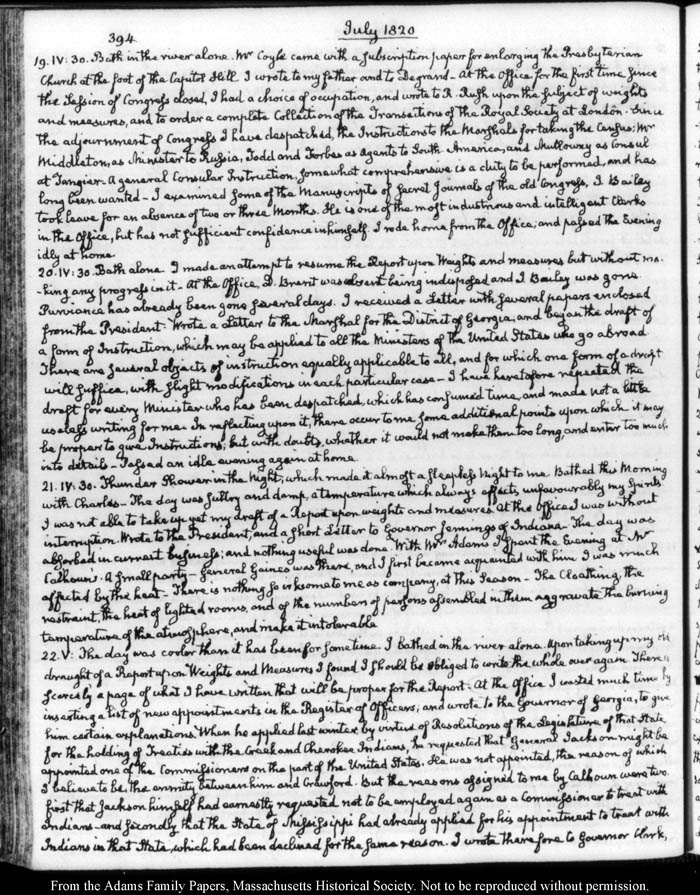 394
July 1820
19. IV:30. Bath in the river alone. Mr Coyle came with a subscription paper for enlarging the Presbyterian
Church at the foot of the Capitol Hill. I wrote to my father and to Degrand - At the Office for the first time since
the Session of Congress closed, I had a choice of occupation, and wrote to R. Rush upon the subject of weights
and measures, and to order a complete Collection of the Transactions of the Royal Society at London. Since
the adjournment of Congress I have despatched, the Instructions to the Marshals for taking the Census; Mr
Middleton, as Minister to Russia, Todd and Forbes as Agents to South America, and Mullowny as Consul
at Tangier. A general Consular Instruction, somewhat comprehensive is a duty to be performed, and has
long been wanted - I examined some of the Manuscripts of secret Journals of the old Congress, J. Bailey
took leave for an absence of two or three Months. He is one of the most industrious and intelligent Clerks
in the Office, but has not sufficient confidence in himself. I rode home from the Office; and passed the Evening
idly at home.
20. IV:30. Bath alone. I made an attempt to resume the Report upon Weights and measures but without ma-
-king any progress in it - At the Office, D. Brent was absent being indisposed and J. Bailey was gone.
Purviance has already been gone several days. I received a Letter with several papers enclosed
from the President. Wrote a Letter to the Marshal for the District of Georgia, and began the draft of
a form of Instruction, which may be applied to all the Ministers of the United States who go abroad
There are several objects of instruction equally applicable to all, and for which one form of a draft
will suffice, with slight modifications in each particular case - I have heretofore repeated the
draft for every Minister who has been despatched, which has consumed time, and made not a little
useless writing for me. In reflecting upon it, there occur to me some additional points upon which it may
be proper to give Instructions; but with doubts, whether it would not make them too long and enter too much
into details - Passed an idle evening again at home.
21. IV:30. Thunder Shower in the Night, which made it almost a sleepless Night to me. Bathed this Morning
with Charles - The day was sultry and damp, a temperature which always affects unfavourably my Spirits
I was not able to take up yet my draft of a Report upon weights and measures. At the Office I was without
interruption. Wrote to the President, and a short Letter to Governor Jennings of Indiana - The day was
absorbed in current business; and nothing useful was done. With Mrs Adams I spent the Evening at Mr
Calhoun's. A small party - General Gaines was there, and I first became acquainted with him. I was much
affected by the heat - There is nothing so irksome to me as company, at this Season - The Cloathing, the
restraint, the heat of lighted rooms, and of the numbers of persons assembled in them aggravate the burning
temperature of the atmosphere, and make it intolerable
22. V. The day was cooler than it has been for some time. I bathed in the river alone. Upon taking up my old
draught of a Report upon Weights and Measures I found I should be obliged to write the whole over again. There is
scarcely a page of what I have written that will be proper for the Report - At the Office I wasted much time by
inserting a list of new appointments in the Register of Officers, and wrote to the Governor of Georgia, to give
him certain explanations. When he applied last winter by virtue of Resolutions of the Legislature of that State
for the holding of Treaties with the Creek and Cherokee Indians, he requested that General Jackson might be
appointed one of the Commissioners on the part of the United States. He was not appointed, the reason of which
I believe to be, the enmity between him and Crawford. But the reasons assigned to me by Calhoun were two.
first that Jackson himself had earnestly requested not to be employed again as a Commissioner to treat with
Indians - and secondly that the State of Mississippi had already applied for his appointment to treat with
Indians in that State, which had been declined for the same reason. I wrote therefore to Governor Clark,
From the Adams Family Papers, Massachusetts Historical Society. Not to be reproduced without permission.